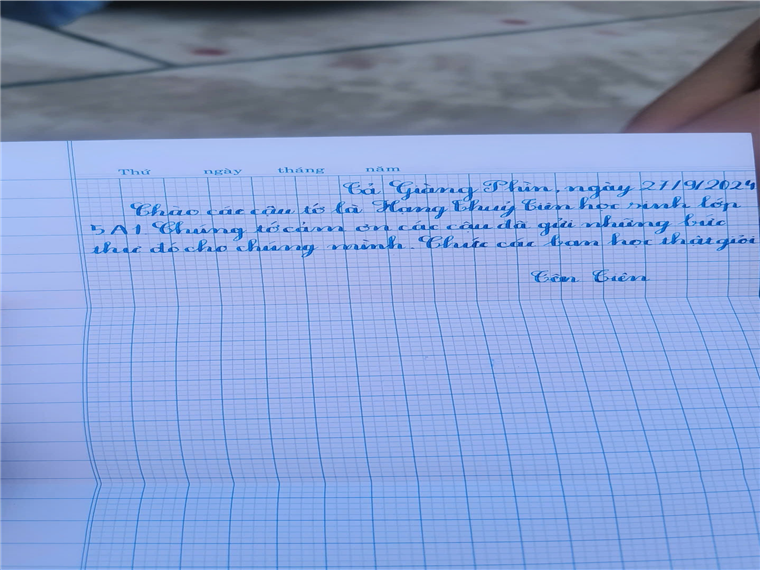 Thứ ngày tháng năm
Tả Giàng Phìn, ngày 27/9/2024
Chào các cậu tớ là Hạng Thuỷ Tiên học sinh lớp
5A1. Chúng tớ cảm ơn các cậu đã gửi những bức
thư đó cho chúng mình. Chúc các bạn học thật giỏi
Tiên